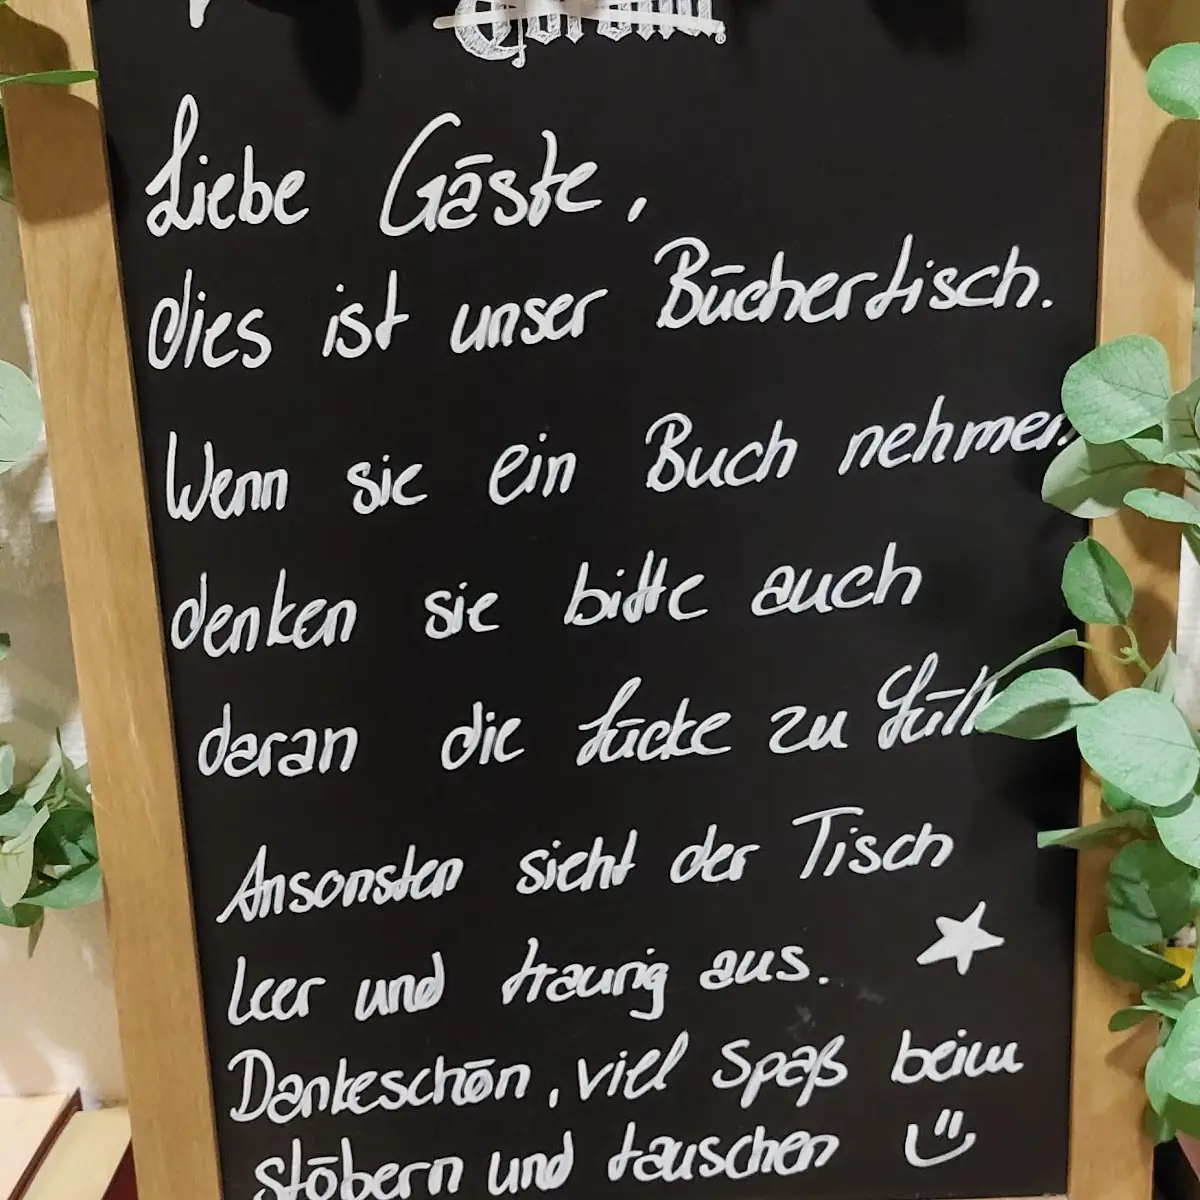 Corona
Liebe Gäste,
dies ist unser Büchertisch.
Wenn sie ein Buch nehmen
denken sie bitte auch
daran die Lücke zu
Ansonsten sieht der Tisch
leer und traurig aus.
Dankeschön, viel Spaß beim
stöbern und tauschen